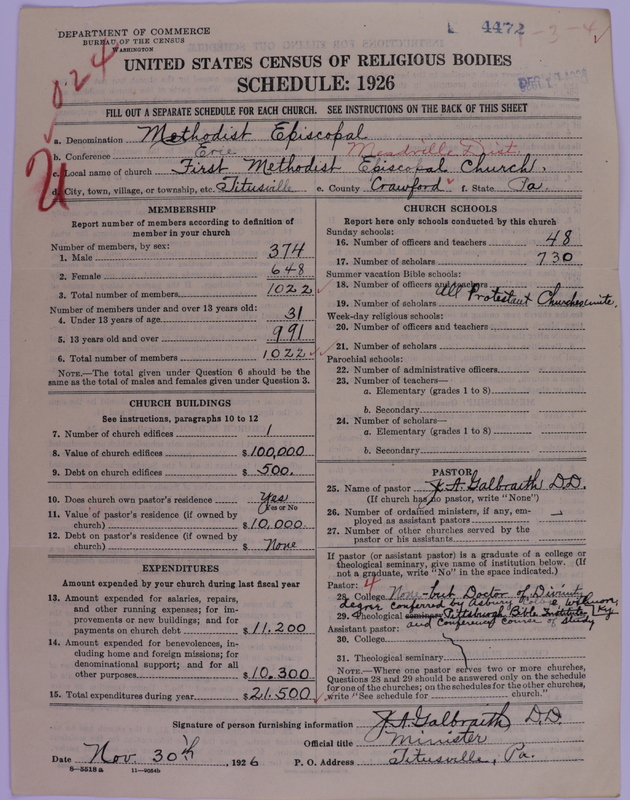 DEPARTMENT OF COMMERCE
BUREAU OF THE CENSUS
WASHINGTON
4472
1-3-4
024
2
UNITED STATES CENSUS OF RELIGIOUS BODIES
SCHEDULE: 1926
FILL OUT A SEPARATE SCHEDULE FOR EACH CHURCH. SEE INSTRUCTIONS ON THE BACK OF THIS SHEET
a. Denomination Methodist Episcopal
b. Conference Erie Meadville Dist.
c. Local name of church First Methodist Episcopal Church.
d. City, town, village, or township, etc. Titusville e. County Crawford f. State Pa.
MEMBERSHIP
Report number of members according to definition of
member in your church
Number of members, by sex:
1. Male 374
2. Female 648
3. Total number of members 1022
Number of members under and over 13 years old:
4. Under 13 years of age 31
5. 13 years old and over 991
6. Total number of members 1022
NOTE.—The total given under Question 6 should be
same as the total of males and females given under Question 3.
CHURCH BUILDINGS
See instructions, paragraphs 10 to 12
7. Number of church edifices 1
8. Value of church edifices $100,000
9. Debt on church edifices $500.
10. Does church own pastor's residence Yes
(Yes or No)
11. Value of pastor's residence (if owned by
church) $10,000
12. Debt on pastor's residence (if owned by
church) $None
EXPENDITURES
Amount expended by your church during last fiscal year
13. Amount expended for salaries, repairs,
and other running expenses; for im-
provements or new buildings; and for
payments on church debt $11.200
14. Amount expended for benevolences, in-
cluding home and foreign missions; for
denominational support; and for all
other purposes $10.300
15. Total expenditures during year $21.500
CHURCH SCHOOLS
Report here only schools conducted by this church
Sunday schools:
16. Number of officers and teachers 48
17. Number of scholars 730
Summer vacation Bible schools:
18. Number of officers and teachers
All Protestant Churches unite.
19. Number of scholars
Week-day religious schools:
20. Number of officers and teachers
21. Number of scholars
Parochial schools:
22. Number of administrative officers
23. Number of teachers—
a. Elementary (grades 1 to 8)
b. Secondary
24. Number of scholars—
a. Elementary (grades 1 to 8)
b. Secondary
PASTOR
25. Name of pastor J. A. Galbraith D.D.
(If church has no pastor, write "None")
26. Number of ordained ministers, if any, em-
ployed as assistant pastors —
27. Number of other churches served by the
pastor or his assistants
If pastor (or assistant pastor) is a graduate of a college or
theological seminary, give name of institution below. (If
not a graduate, write "No" in the space indicated.)
Pastor: 4
28. College None - but Doctor of Divinity
degree conferred by Asbury College, Wilmore, Ky
29. Theological seminary Pittsburgh Bible Institute
and Conference Course of Study
Assistant pastor:
30. College
31. Theological seminary
NOTE.—Where one pastor serves two or more churches,
Questions 28 and 29 should be answered only on the schedule
for one of the churches; on the schedules for the other churches,
write "See schedule for church."
Signature of person furnishing information J. A. Galbraith D.D.
Official title Minister
Date Nov. 30th, 1926 P. O. Address Titusville, Pa.
8—5518a 11—9054b